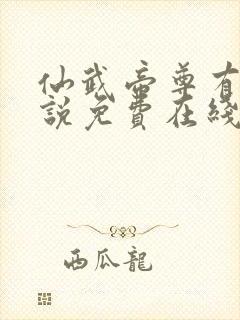 仙武帝尊有
說免費在綫
西瓜龍